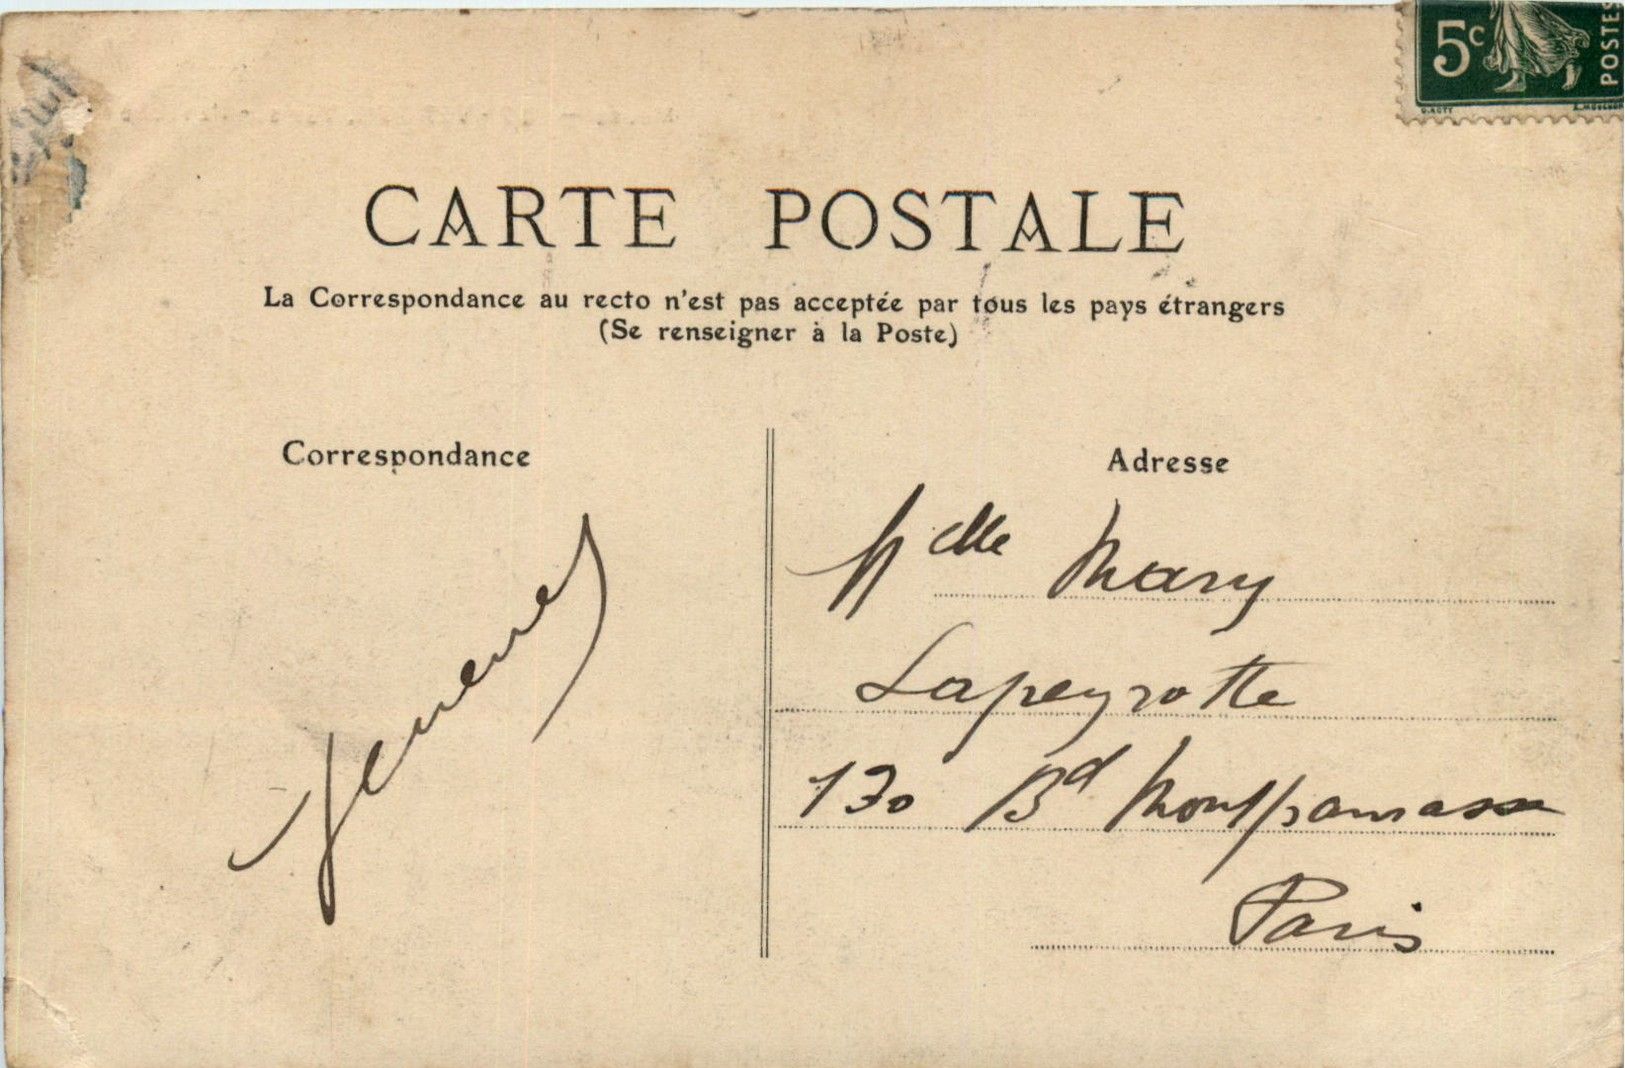 5c
POSTES
CARTE POSTALE
La Correspondance au recto n'est pas acceptée par tous les pays étrangers
(Se renseigner à la Poste)
Correspondance
Adresse
Melle Mary
Lapeyrotte
130 Bd Montparnasse
Paris